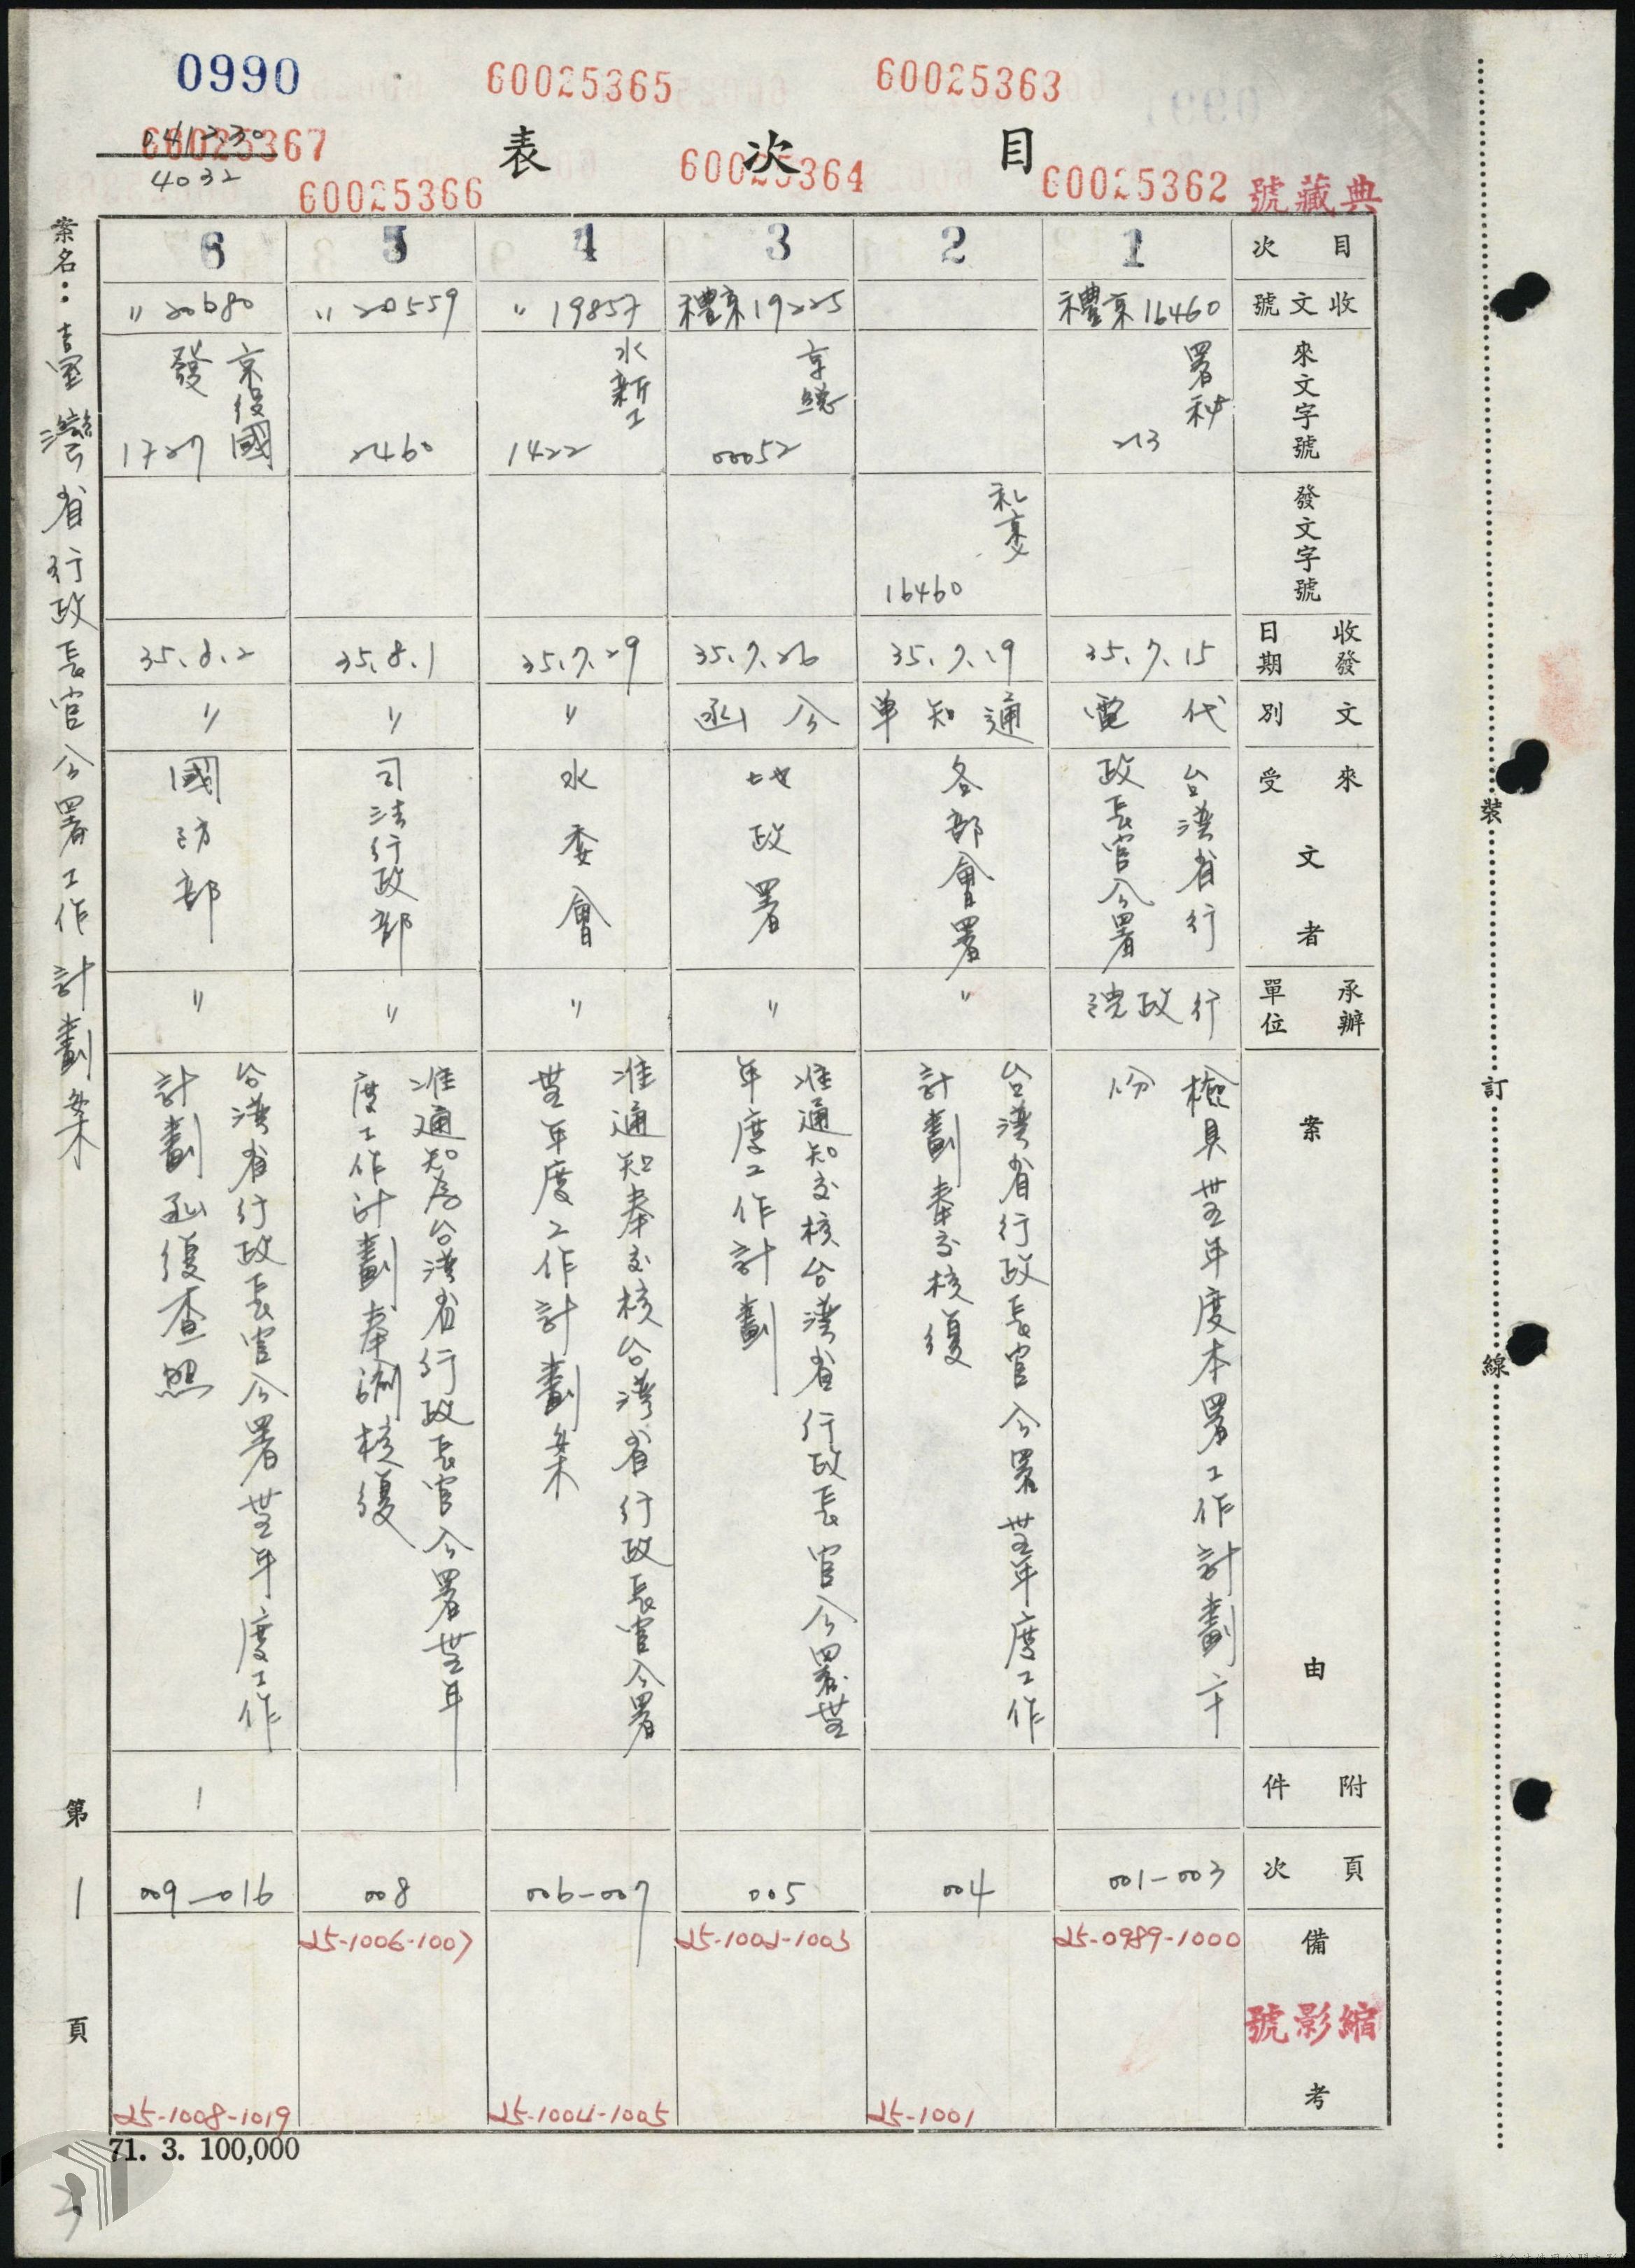 0990
60025365
60025363
60025367
60025364
60025366
60025362
典藏號
041230
4032
目次表
案名：臺灣省行政長官公署工作計劃案
第1頁
目次
收文號
來文字號
發文字號
收發日期
文別
來受文者
承辦單位
案由
附件
頁次
備考
縮影號
1
禮京16460
署秘
213
35.7.15
代電
台灣省行
政長官公署
行政院
檢具卅五年度本署工作計劃二十
份
001-003
25-0989-1000
2
礼京
16460
35.7.19
通知單
各部會署
〃
台灣省行政長官公署卅五年度工作
計劃奉交核復
004
25-1001
3
禮京19225
京總
00052
35.7.26
公函
地政署
〃
准通知交核台灣省行政長官公署卅五
年度工作計劃
005
25-1002-1003
4
〃 19857
水新工
1422
35.7.29
〃
水委會
〃
准通知奉交核台灣省行政長官公署
卅五年度工作計劃案
006-007
25-1004-1005
5
〃 20559
2460
35.8.1
〃
司法行政部
〃
准通知為台灣省行政長官公署卅五年
度工作計劃奉諭核復
008
25-1006-1007
6
〃 20680
發
1727
35.8.2
〃
國防部
〃
台灣省行政長官公署卅五年度工作
計劃函復查照
1
009-016
25-1008-1019
裝
訂
線
71. 3. 100,000